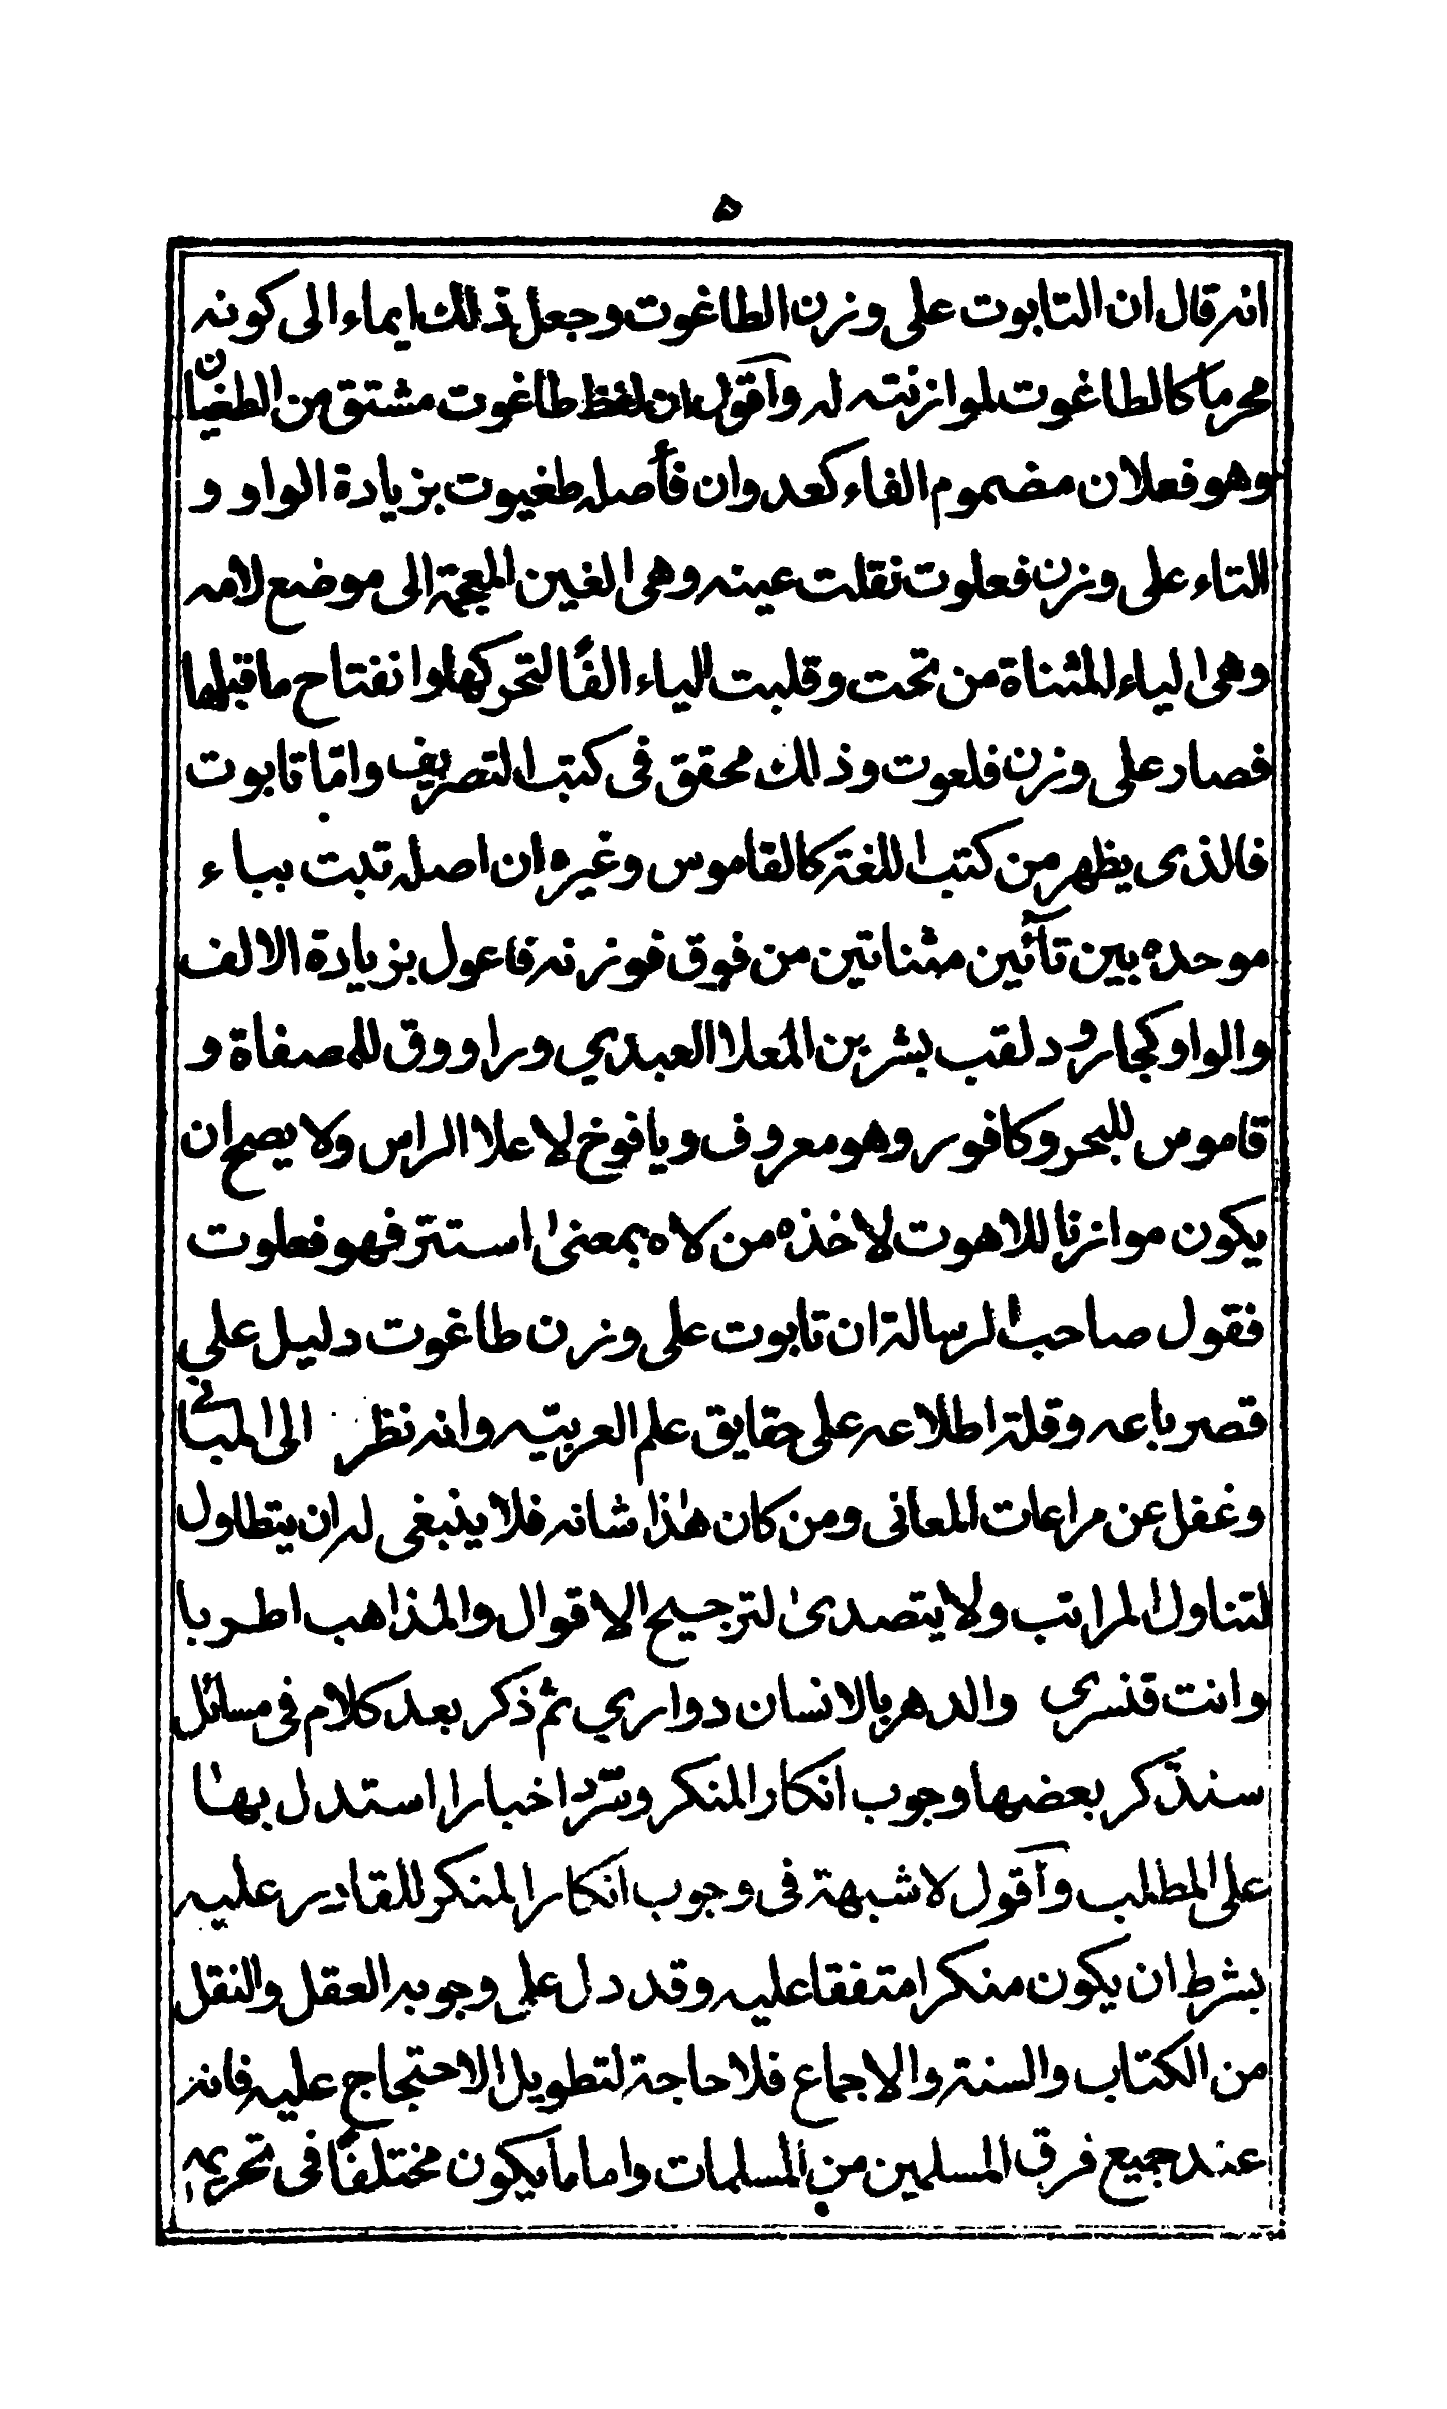 ٥
انه قال ان التابوت على وزن الطاغوت وجعل ذلك ايماء الى كونه
محرما كالطاغوت لموازنته له وآقول ان لفظ طاغوت مشتق من الطغيان
وهو فعلان مضموم الفاء كعدوان فأصله طغيوت بزيادة الواو و
التاء على وزن فعلوت نقلت عينه وهى الغين المعجمة الى موضع لامه
وهى الياء المثناة من تحت وقلبت الياء الفًا لتحركها وانفتاح ما قبلها
فصار على وزن فلعوت وذلك محقق فى كتب التصريف وامّا تابوت
فالذى يظهر من كتب اللغة كالقاموس وغيره ان اصله تبت بباء
موحده بين تآئين مثناتين من فوق فوزنه فاعول بزيادة الالف
والواو كجارود لقب بشر بن المعلا العبدي وراووق للمصفاة و
قاموس للبحر وكافور وهو معروف ويافوخ لاعلا الراس ولا يصح ان
يكون موازنا للاهوت لاخذه من لاه بمعنىٰ استتر فهو فعلوت
فقول صاحب الرسالة ان تابوت على وزن طاغوت دليل علي
قصر باعه وقلة اطلاعه على حقايق علم العربيّه وانه نظر الى المبانى
وغفل عن مراعات المعانى ومن كان هٰذا شانه فلا ينبغى له ان يتطاول
لتناول المراتب ولا يتصدىٰ لترجيح الاقوال والمذاهب اطربا
وانت قنسري والدهر بالانسان دواري ثم ذكر بعد كلام فى مسائل
سنذّكر بعضها وجوب انكار المنكر وسرد اخبارا استدل بهٰا
على المطلب وآقول لا شبهة فى وجوب انكار المنكر للقادر عليه
بشرط ان يكون منكرا متفقا عليه وقد دل على وجوبه العقل والنقل
من الكتاب والسنة والاجماع فلا حاجة لتطويل الاحتجاج عليه فانه
عند جميع فرق المسلمين من المسلمات واما ما يكون مختلفًا فى تحريمه